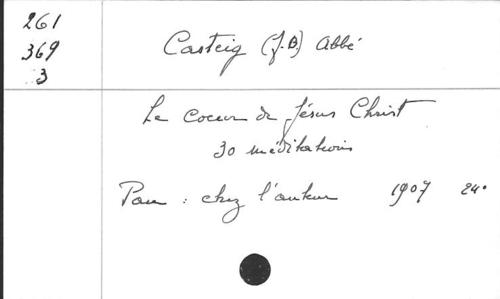 261
369
3
Casteig (J.B.) abbé
Le coeur de Jésus Christ
30 méditations
Pau : chez l'auteur 1907 24°